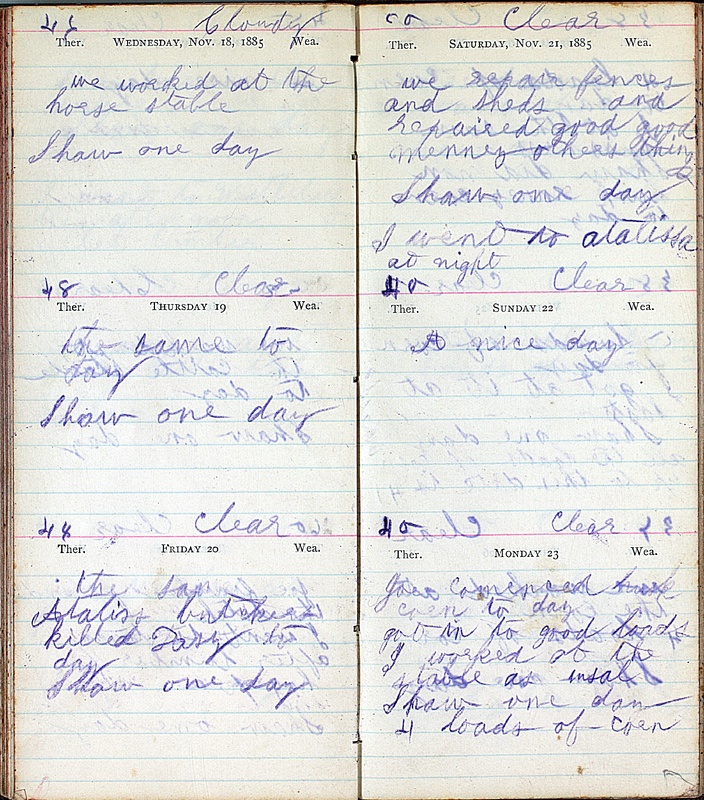 Cloudy
Ther. WEDNESDAY, NOV. 18, 1885 Wea.
we worked at the
horse stable
Shaw one day
48 Clear
Ther. THURSDAY 19 Wea.
the same to
day
Shaw one day
48 Clear
Ther. FRIDAY 20 Wea.
the sam
Ataliss butchers
killed to
day
Shaw one day
Clear
Ther. SATURDAY, NOV. 21, 1885 Wea.
we repair fences
and sheds and
repaired good good
menney others thing
Shaw one day
I went to atalissa
at night
40 Clear
Ther. SUNDAY 22 Wea.
A nice day
40 Clear
Ther. MONDAY 23 Wea.
comenced
coen to day
got in to good loads
I worked at the
stable as usal
Shaw one day
4 loads of coen